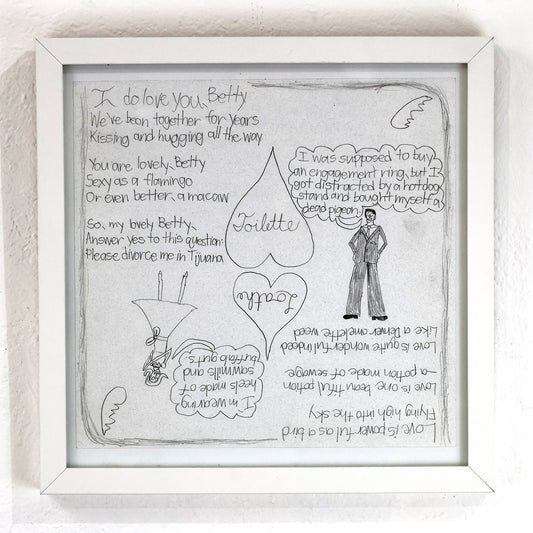 I do love you, Betty
We've been together for years
Kissing and hugging all the way
You are lovely, Betty
Sexy as a flamingo
Or even better, a macaw
So, my lovely Betty,
Answer yes to this question:
Please divorce me in Tijuana
I was supposed to buy
an engagement ring, but I
got distracted by a hotdog
stand and bought myself a
dead pigeon.
Toilette
Loathe
I'm wearing
heels made of
sawmills and
buffalo guts.
Love is powerful as a bird
Flying high into the sky
Love is one beautiful potion
—a potion made of sewage
Love is quite wonderful indeed
Like a Denver omelette weed